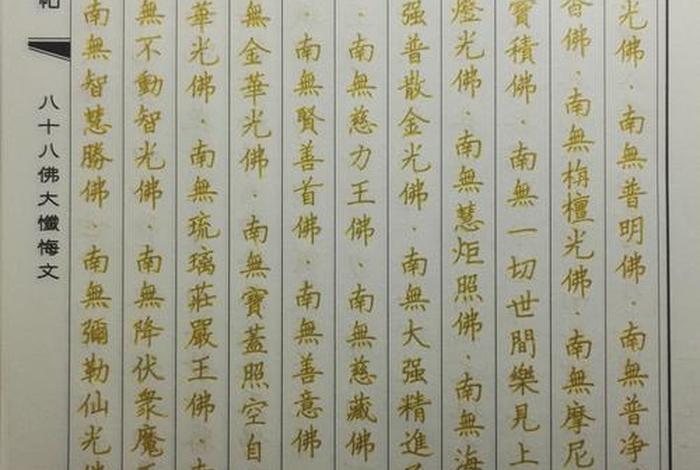 光佛·南無普明佛·南無普净
香佛·南無栴檀光佛·南無摩尼
寶積佛·南無一切世間樂見上
燈光佛·南無慧炬照佛·南無海
强普散金光佛·南無大强精進
·南無慈力王佛·南無慈藏佛
·南無賢善首佛·南無善意佛
無金華光佛·南無寶蓋照空自
華光佛·南無琉璃莊嚴王佛·南
無不動智光佛·南無降伏衆魔王
南無智慧勝佛·南無彌勒仙光佛
八十八佛大懺悔文